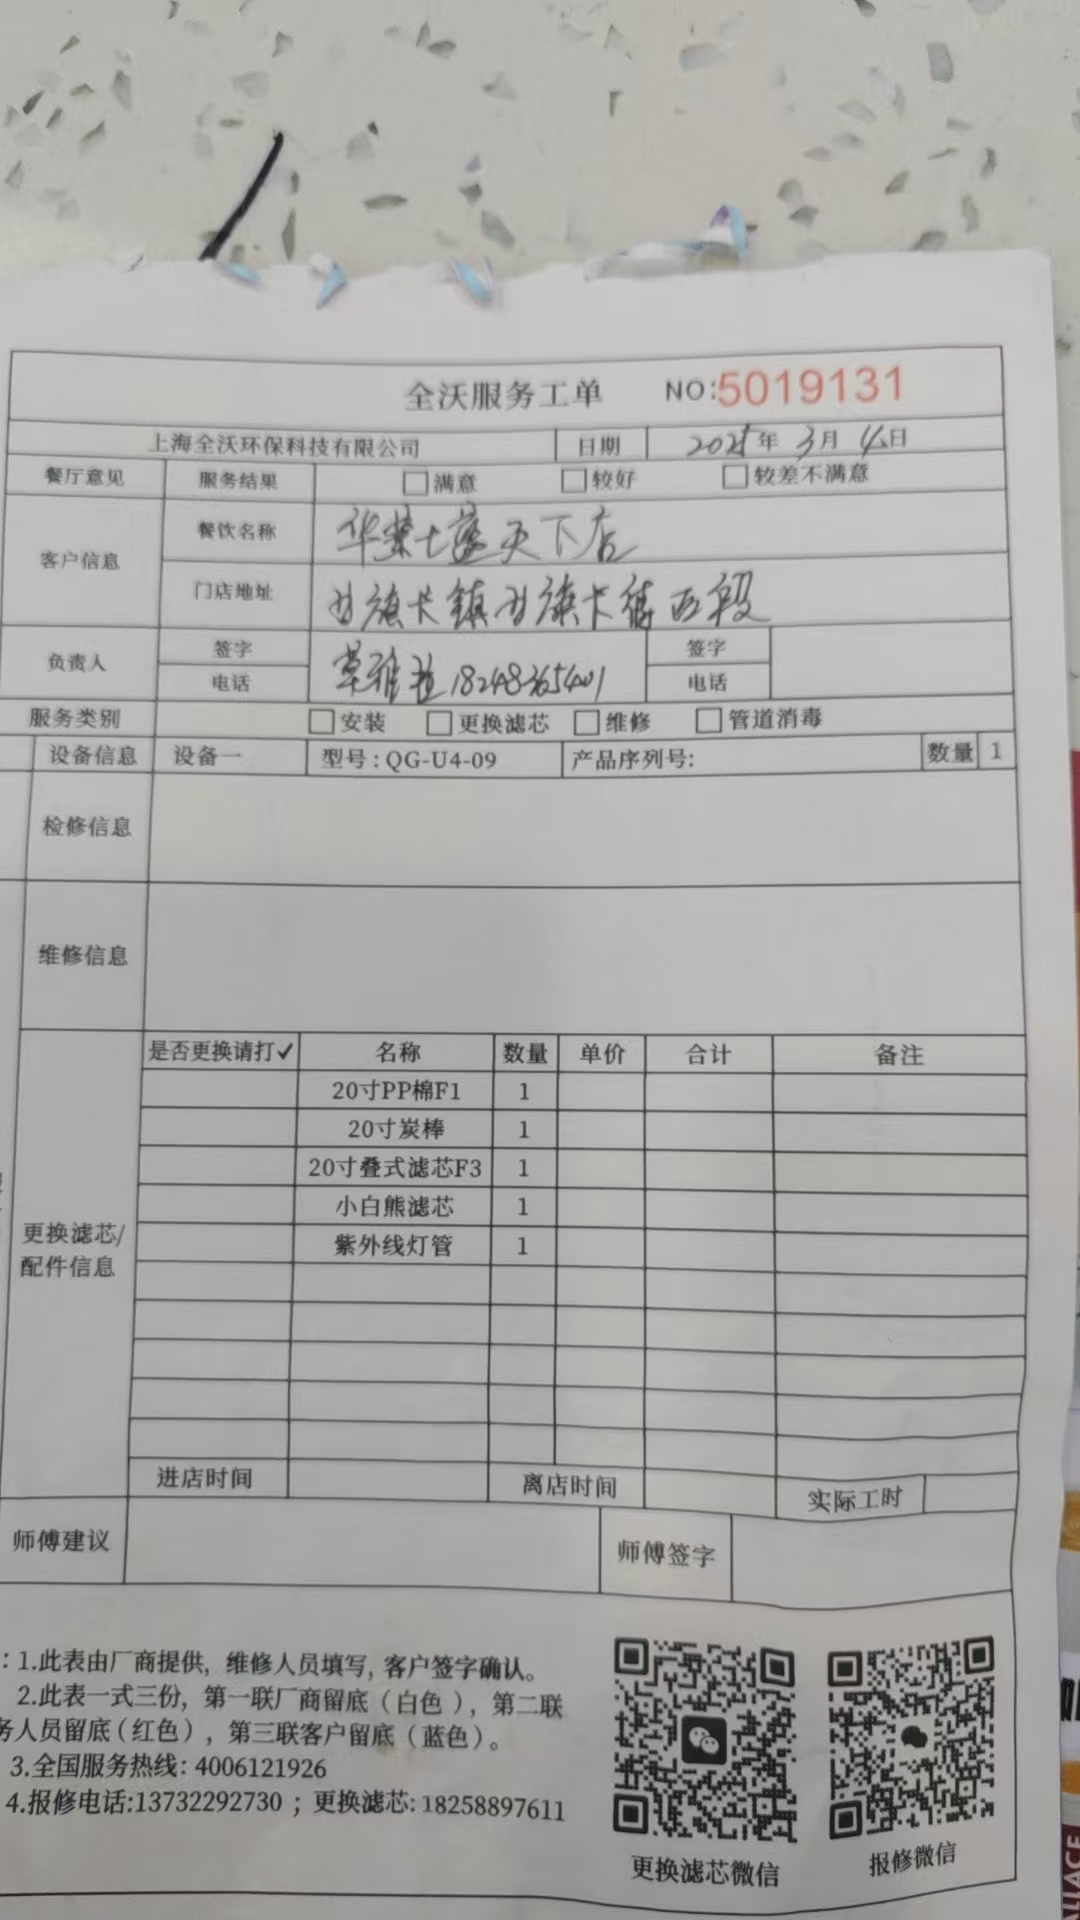 全沃服务工单 NO:5019131
上海全沃环保科技有限公司 日期 2025年 3月 4日
餐厅意见 服务结果 □满意 □较好 □较差不满意
客户信息 餐饮名称 华莱士 天下店
门店地址 旗卡镇 旗卡 西段
负责人 签字 签字
电话 18248365401 电话
服务类别 □安装 □更换滤芯 □维修 □管道消毒
设备信息 设备一 型号:QG-U4-09 产品序列号: 数量 1
检修信息
维修信息
是否更换请打✓ 名称 数量 单价 合计 备注
20寸PP棉F1 1
20寸炭棒 1
20寸叠式滤芯F3 1
小白熊滤芯 1
紫外线灯管 1
更换滤芯/
配件信息
进店时间 离店时间 实际工时
师傅建议 师傅签字
:1.此表由厂商提供, 维修人员填写, 客户签字确认。
2.此表一式三份, 第一联厂商留底(白色), 第二联
务人员留底(红色), 第三联客户留底(蓝色)。
3.全国服务热线: 4006121926
4.报修电话:13732292730 ; 更换滤芯: 18258897611
更换滤芯微信 报修微信